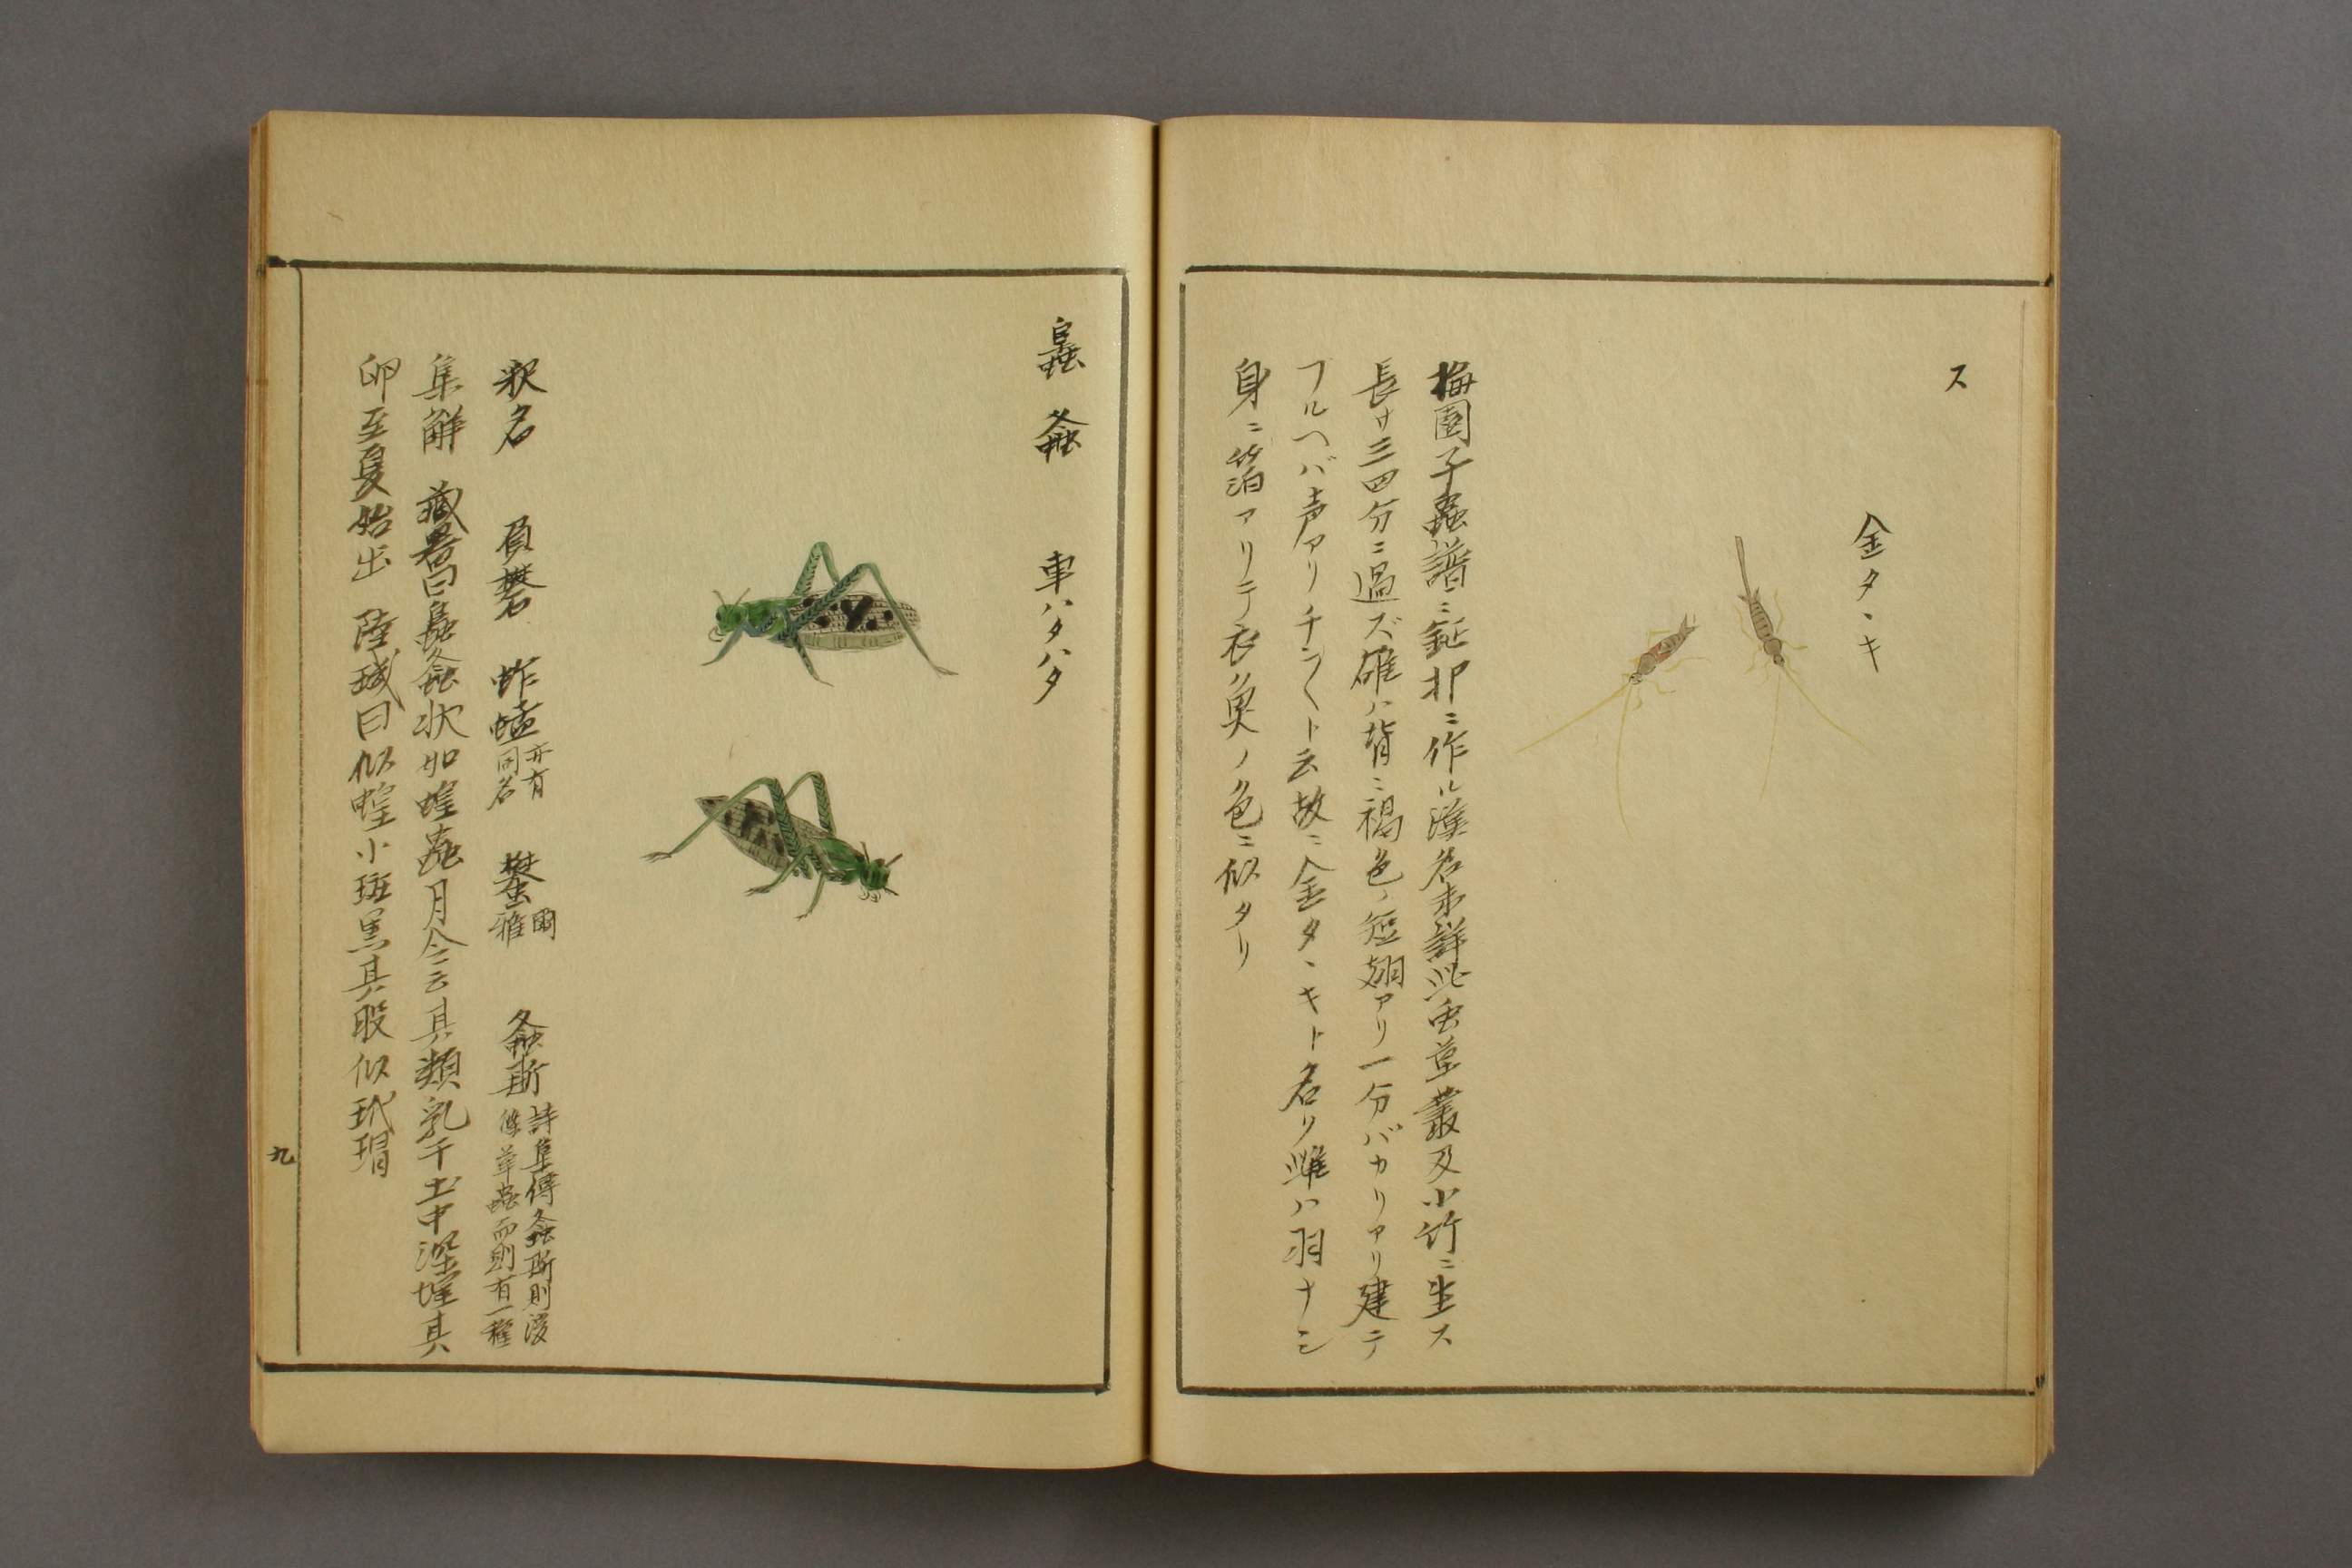 ス
金タヽキ
梅園子蟲譜ニ鉦叩ニ作ル漢名未詳此虫草叢及小竹ニ生ス
長サ三四分ニ過ズ雄ハ背ニ褐色ノ短翅アリ一分バカリアリ建テ
フルヘバ声アリチン〱ト云故ニ金タヽキト名ク雌ハ羽ナシ
身ニ箔アリテ衣ノ魚ノ色ニ似タリ
𧒂螽 車ハタハタ
釈名 負礬 蚱蜢亦有同名 蠜爾雅 螽斯
集解 蔵器曰𧒂螽状如蝗蟲月令云其類乳于土中深埋其
卵至夏始出 陸璣曰似蝗小斑黒其股似玳瑁
九